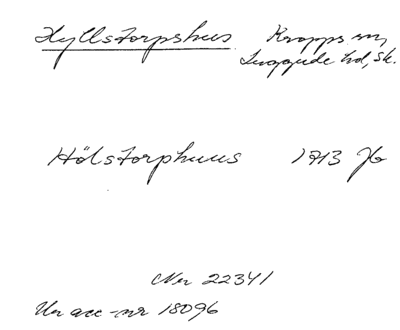 Hyllstorpshus Kropps sn,
Luggude hd, Sk.
Hölstorphuus 1713 Jb
Nr 22341
Ur acc-nr 18096